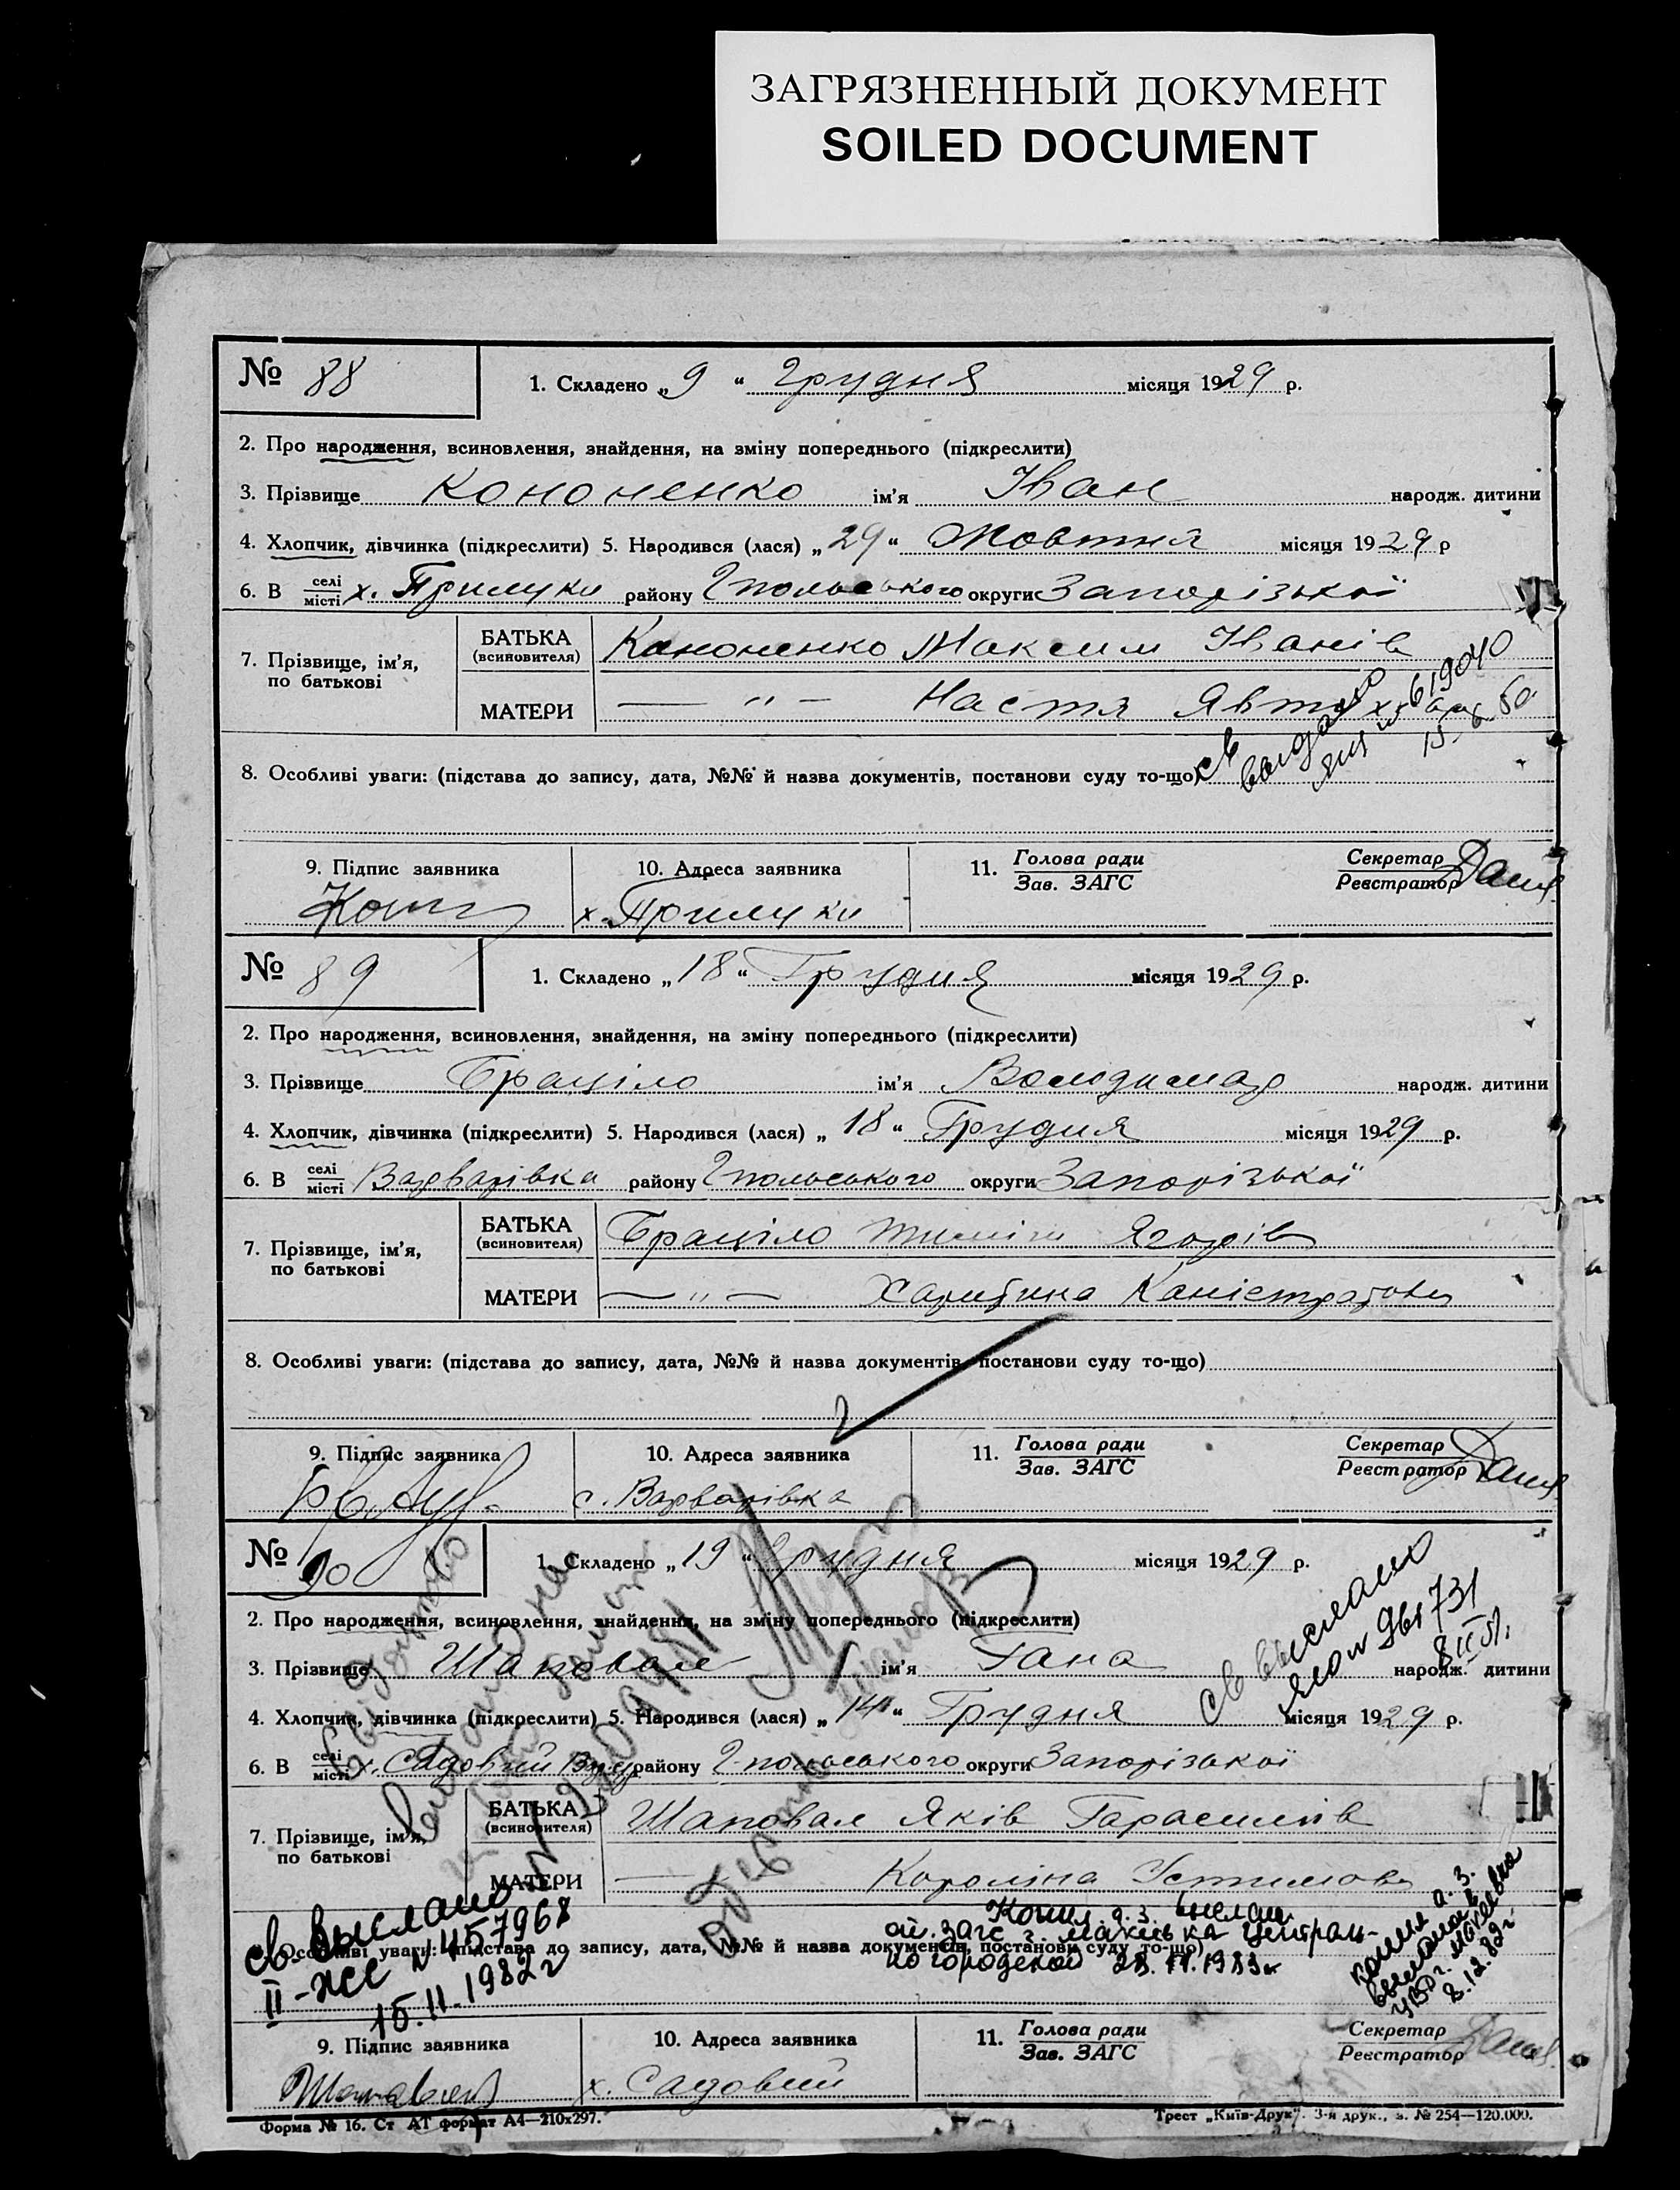 ЗАГРЯЗНЕННЫЙ ДОКУМЕНТ
SOILED DOCUMENT
№ 88
1. Складено „ 9 “ Грудня місяця 1929 р.
2. Про народження, всиновлення, знайдення, на зміну попереднього (підкреслити)
3. Прізвище Кононенко ім'я Іван народж. дитини
4. Хлопчик, дівчинка (підкреслити) 5. Народився (лася) „ 29 “ Жовтня місяця 1929 р
6. В селі/місті х. Прилуки району Гпольського округи Запорізької
7. Прізвище, ім'я, по батькові
БАТЬКА (всиновителя) Кононенко Максим Іванів
МАТЕРИ — " — Настя
св выдано
619040
8. Особливі уваги: (підстава до запису, дата, №№ й назва документів, постанови суду то-що)
9. Підпис заявника
10. Адреса заявника х. Прилуки
11. Голова ради / Зав. ЗАГС
Секретар / Реєстратор
№ 89
1. Складено „ 18 “ Грудня місяця 1929 р.
2. Про народження, всиновлення, знайдення, на зміну попереднього (підкреслити)
3. Прізвище Браціло ім'я Володимар народж. дитини
4. Хлопчик, дівчинка (підкреслити) 5. Народився (лася) „ 18 “ Грудня місяця 1929 р.
6. В селі/місті Варварівка району Гпольського округи Запорізької
7. Прізвище, ім'я, по батькові
БАТЬКА (всиновителя) Браціло Ягорів
МАТЕРИ — " — Харитина
8. Особливі уваги: (підстава до запису, дата, №№ й назва документів, постанови суду то-що)
9. Підпис заявника
10. Адреса заявника с. Варварівка
11. Голова ради / Зав. ЗАГС
Секретар / Реєстратор
№ 90
1. Складено „ 19 “ Грудня місяця 1929 р.
2. Про народження, всиновлення, знайдення, на зміну попереднього (підкреслити)
св выслано
3. Прізвище Шаповал ім'я Гана народж. дитини
4. Хлопчик, дівчинка (підкреслити) 5. Народився (лася) „ 14 “ Грудня місяця 1929 р.
6. В селі/місті х. Садовий району Гпольського округи Запорізької
7. Прізвище, ім'я, по батькові
БАТЬКА (всиновителя) Шаповал Яків Гарасимів
МАТЕРИ Короліна Устимова
св. выслано
II-ЖС № 457968
15.11.1982 г
Копия а.з. выслан
от. загс г. Макеевка Централь-
но городской 28. 11. 1983 г
копия а.з.
г. Макеевка
8.12.82 г
8. Особливі уваги: (підстава до запису, дата, №№ й назва документів, постанови суду то-що)
9. Підпис заявника
10. Адреса заявника х. Садовий
11. Голова ради / Зав. ЗАГС
Секретар / Реєстратор
Форма № 16. Ст АТ формат А4—210х297.
Трест „Київ-Друк“. 3-я друк., з. № 254—120.000.